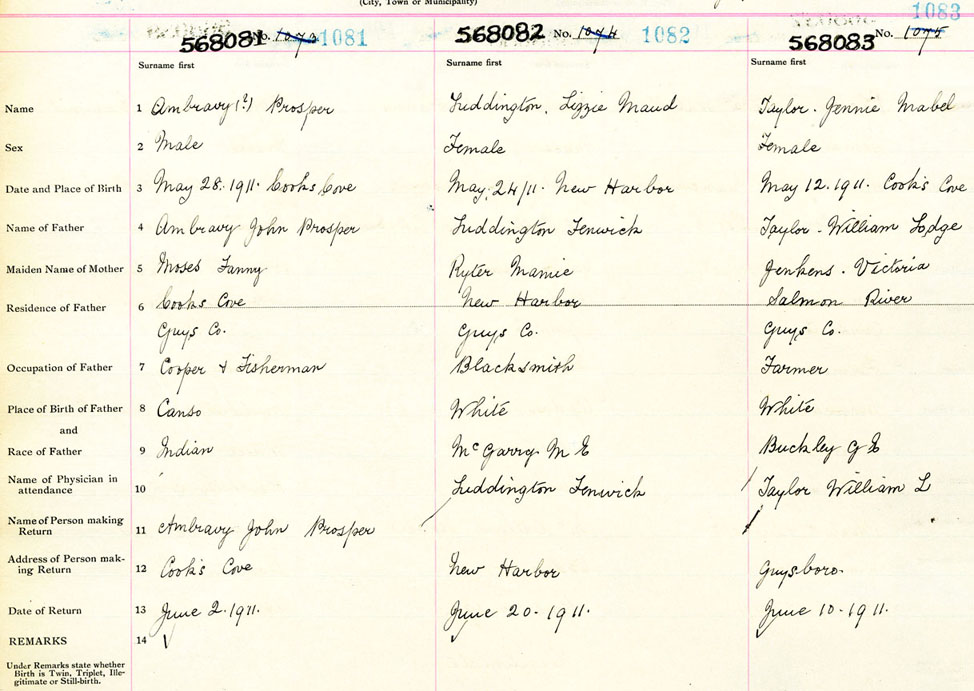 (City, Town or Municipality)
1083
568081 No. 1073 1081 568082 No. 1074 1082 568083 No. 1075
Surname first Surname first Surname first
Name 1 Ambravy (?) Prosper Luddington, Lizzie Maud Taylor. Jennie Mabel
Sex 2 Male Female Female
Date and Place of Birth 3 May 28. 1911. Cooks Cove May. 24/11. New Harbor May 12. 1911. Cook's Cove
Name of Father 4 Ambravy John Prosper Luddington Fenwick Taylor - William Lodge
Maiden Name of Mother 5 Moses Fanny Ryter Mamie Jenkens. Victoria
Residence of Father 6 Cooks Cove New Harbor Salmon River
Guys Co. Guys Co. Guys Co.
Occupation of Father 7 Cooper & Fisherman Blacksmith Farmer
Place of Birth of Father 8 Canso White White
and
Race of Father 9 Indian McGarry M E Buckley G E
Name of Physician in
attendance 10 Luddington Fenwick Taylor William L
Name of Person making
Return 11 Ambravy John Prosper
Address of Person mak-
ing Return 12 Cook's Cove New Harbor Guysboro.
Date of Return 13 June 2. 1911. June 20 - 1911. June 10 - 1911.
REMARKS 14
Under Remarks state whether
Birth is Twin, Triplet, Ille-
gitimate or Still-birth.